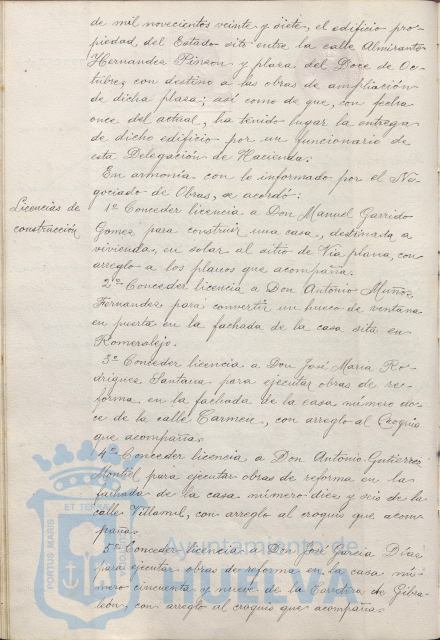 de mil novecientos veinte y siete, el edificio pro-
piedad del Estado sito entre la calle Almirante
Hernandez Pinzon y plaza del Doce de Oc-
tubre, con destino a las obras de ampliación
de dicha plaza; así como de que, con fecha
once del actual, ha tenido lugar la entrega
de dicho edificio por un funcionario de
esta Delegación de Hacienda.
En armonía con lo informado por el Ne-
gociado de Obras, se acordó:
Licencias de
construcción
1º Conceder licencia a Don Manuel Garrido
Gomez para construir una casa, destinada a
vivienda, en solar al sitio de Via plana, con
arreglo a los planos que acompaña.
2º Conceder licencia a Don Antonio Muñoz
Fernandez para convertir un hueco de ventana
en puerta en la fachada de la casa sita en
Romeralejo.
3º Conceder licencia a Don José Maria Ro-
driguez Santana para ejecutar obras de re-
forma, en la fachada de la casa número do-
ce de la calle Carmen, con arreglo al croquis
que acompaña.
4º Conceder licencia a Don Antonio Gutierrez
Montiel para ejecutar obras de reforma en la
fachada de la casa número diez y seis de la
calle con arreglo al croquis que acom-
paña.
5º Conceder licencia a Don José Garcia Diaz
para ejecutar obras de reforma en la casa nú-
mero cincuenta y nueve de la Carretera de Gibra-
león, con arreglo al croquis que acompaña.
PORTUS MARIS
ET TER
Ayuntamiento de
HUELVA